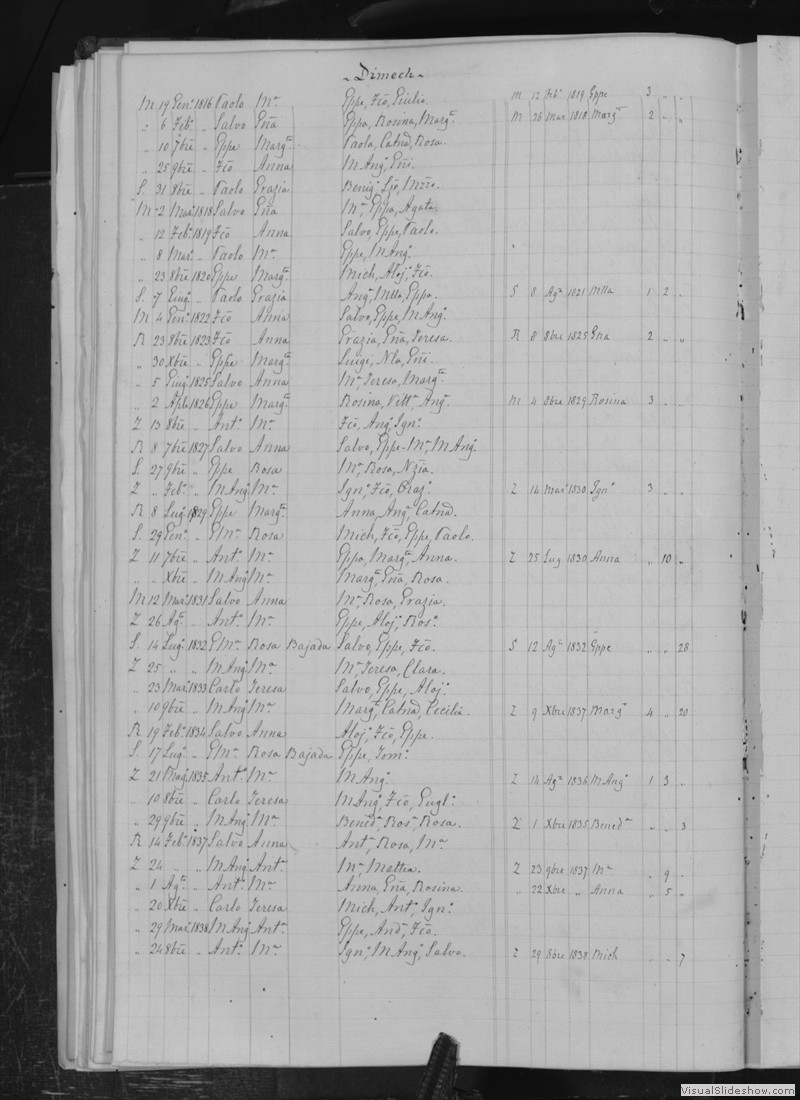 Dimech
M 19 Gen.º 1816 Paolo Mª Eppe, Fcõ, Giulio. M 12 Feb.º 1819 Eppe 3 „ „
„ 6 Feb.º „ Salvo Gña Eppa, Rosina, Marg.ª M 26 Mar. 1818 Marg.ª 2 „ „
„ 10 7bre „ Eppe Marg.ª Paola, Catnã, Rosa.
„ 25 9bre „ Fcõ Anna M Ang.º, Gñi.
S. 31 8bre „ Paolo Grazia
M 2 Mar.º 1818 Salvo Gña Mª, Eppa, Agata.
„ 12 Feb.º 1819 Fcõ Anna Salvo, Eppe, Paolo.
„ 8 Mar.º „ Paolo Mª Eppe, M Ang.º
„ 23 8bre 1820 Eppe Marg.ª Mich, Aloj.º, Fcõ.
S. 7 Giug.º „ Paolo Grazia Ang.ª, Mlla, Eppa. S 8 Ag.º 1821 Mlla 1 2 „
M 4 Gen.º 1822 Fcõ Anna Salvo, Eppe, M Ang.º
R 23 8bre 1823 Fcõ Anna Grazia, Gña, Teresa. R 8 8bre 1825 Gña 2 „ „
„ 30 Xbre „ Eppe Marg.ª Luigi, Nla, Gñi.
„ 5 Giug.º 1825 Salvo Anna Mª, Teresa, Marg.ª
„ 2 Aple 1826 Eppe Marg.ª Rosina, Vittª, Ang.ª M 4 8bre 1829 Rosina 3 „ „
Z 13 8bre „ Ant.º Mª Fcõ, Ang.º, Ign.º
R 8 7bre 1827 Salvo Anna Salvo, Eppe-Mª, M Ang.º
S. 27 9bre „ Eppe Rosa Mª, Rosa, Nzia.
Z „ Feb.º „ M Ang.º Mª Ign.º, Fcõ, Oraz.º Z 14 Mar.º 1830 Ign.º 3 „ „
R 8 Lug.º 1829 Eppe Marg.ª Anna, Ang.ª, Catnã.
S. 29 Gen.º „ GMª Rosa Mich, Fcõ, Eppe, Paolo.
Z 11 7bre „ Ant.º Mª Eppa, Marg.ª, Anna. Z 25 Lug 1830 Anna „ 10 „
„ „ Xbre „ M Ang.º Mª Marg.ª, Gña, Rosa.
M 12 Mar.º 1831 Salvo Anna Mª, Rosa, Grazia.
Z 26 Ag.º „ Ant.º Mª Eppe, Aloj.º, Ros.º
S. 14 Lug.º 1832 GMª Rosa Bajada Salvo, Eppe, Fcõ. S 12 Ag.º 1832 Eppe „ „ 28
Z 25 „ „ M Ang.º Mª Mª, Teresa, Clara.
„ 23 Mar.º 1833 Carlo Teresa Salvo, Eppe, Aloj.º
„ 10 9bre „ M Ang.º Mª Marg.ª, Catnã, Cecilia. Z 9 Xbre 1837 Marg.ª 4 „ 20
R 19 Feb.º 1834 Salvo Anna Aloj.º, Fcõ, Eppe.
S. 17 Lug.º „ GMª Rosa Bajada Eppe, Tom.º
Z 21 Mag.º 1835 Ant.º Mª M Ang.º Z 14 Ag.º 1836 M Ang.º 1 3 „
„ 10 8bre „ Carlo Teresa M Ang.º, Fcõ, Gugl.º
„ 29 9bre „ M Ang.º Mª Benedª, Ros.ª, Rosa. Z 1 Xbre 1835 Benedª „ „ 3
R 14 Feb.º 1837 Salvo Anna Ant.ª, Rosa, Mª
Z 24 „ „ M Ang.º Ant.ª Mª, Mattea. Z 23 9bre 1837 Mª „ 9 „
„ 1 Ag.º „ Ant.º Mª Anna, Gña, Rosina. „ 22 Xbre „ Anna „ 5 „
„ 20 Xbre „ Carlo Teresa Mich, Ant.º, Ign.º
„ 29 Mar.º 1838 M Ang.º Ant.ª Eppe, And.ª, Fcõ.
„ 24 8bre „ Ant.º Mª Ign.º, M Ang.º, Salvo. Z 29 8bre 1838 Mich „ „ 7
VisualSlideshow.com